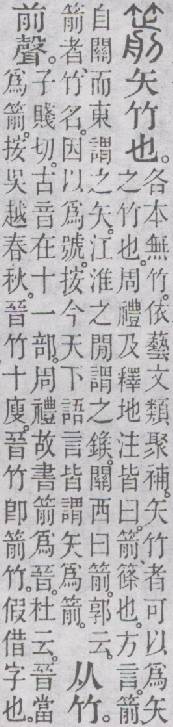 箭矢竹也。各本無竹。依藝文類聚補。矢竹者可以爲矢
之竹也。周禮及釋地注皆曰。箭、篠也。方言。箭
自關而東謂之矢。江淮之閒謂之鍭。關西曰箭。郭云。
箭者竹名。因以爲號。按今天下語言皆謂矢爲箭。
从竹。
前聲。子賤切。古音在十一部。周禮故書箭爲晉。杜云。晉當
爲箭。按吳越春秋。晉竹十廋。晉竹卽箭竹。假借字也。